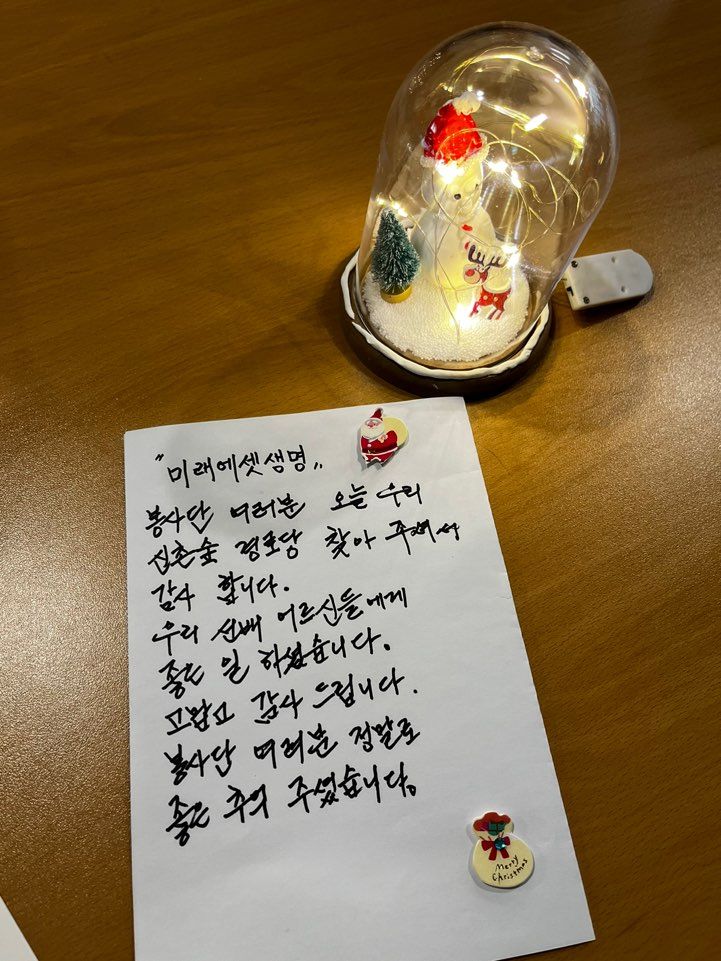 "미래에셋생명"
봉사단 여러분 오늘 우리
신촌숲 경로당 찾아 주셔서
감사 합니다.
우리 선배 어르신들에게
좋은 일 하셨습니다.
고맙고 감사 드립니다.
봉사단 여러분 정말로
좋은 추억 주셨습니다.
Merry
Christmas